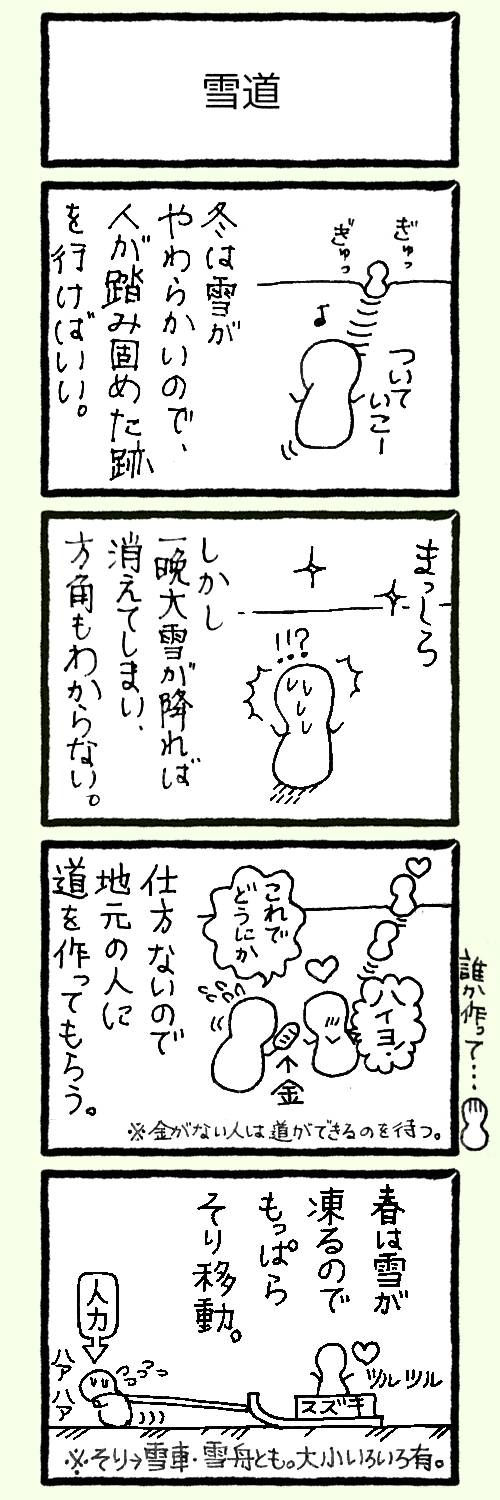 雪道
冬は雪が
やわらかいので、
人が踏み固めた跡
を行けばいい。
ぎゅっ
ぎゅっ
♪
ついて
いこー
まっしろ
!!?
しかし
一晩大雪が降れば
消えてしまい、
方角もわからない。
仕方ないので
地元の人に
道を作ってもらう。
これで
どうにか
ハイヨ!
↑
金
※金がない人は道ができるのを待つ。
誰か作って…
春は雪が
凍るので
もっぱら
そり移動。
人力
ハァ
ハァ
ツルツル
スズキ
※そり→雪車・雪舟とも。大小いろいろ有。